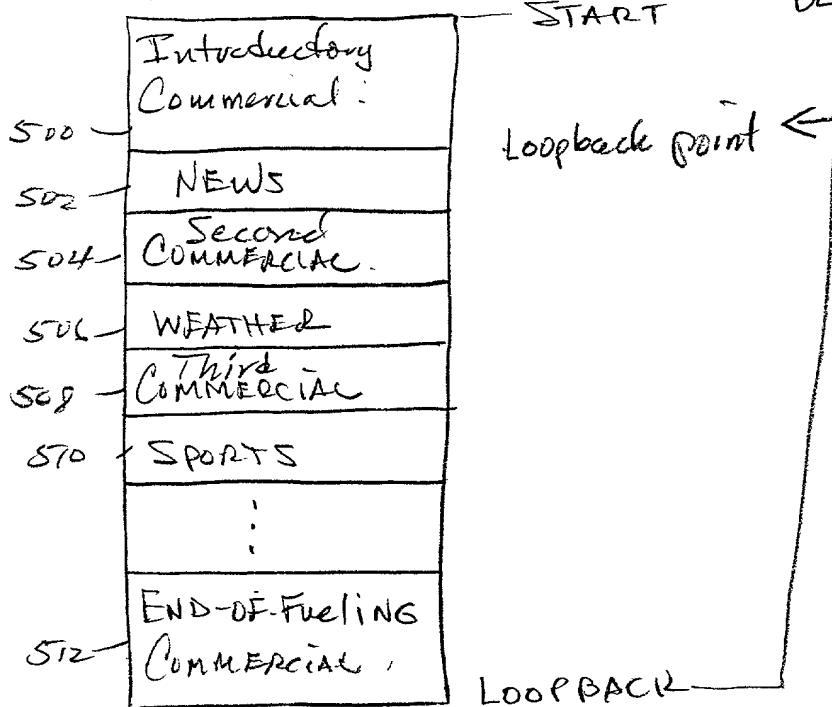 START
Introductory
Commercial:
500
Loopback point
NEWS
502
Second
COMMERCIAL.
504
WEATHER
506
Third
COMMERCIAL
508
510
SPORTS
END-OF-FueliNG
COMMERCIAL,
512
LOOPBACK